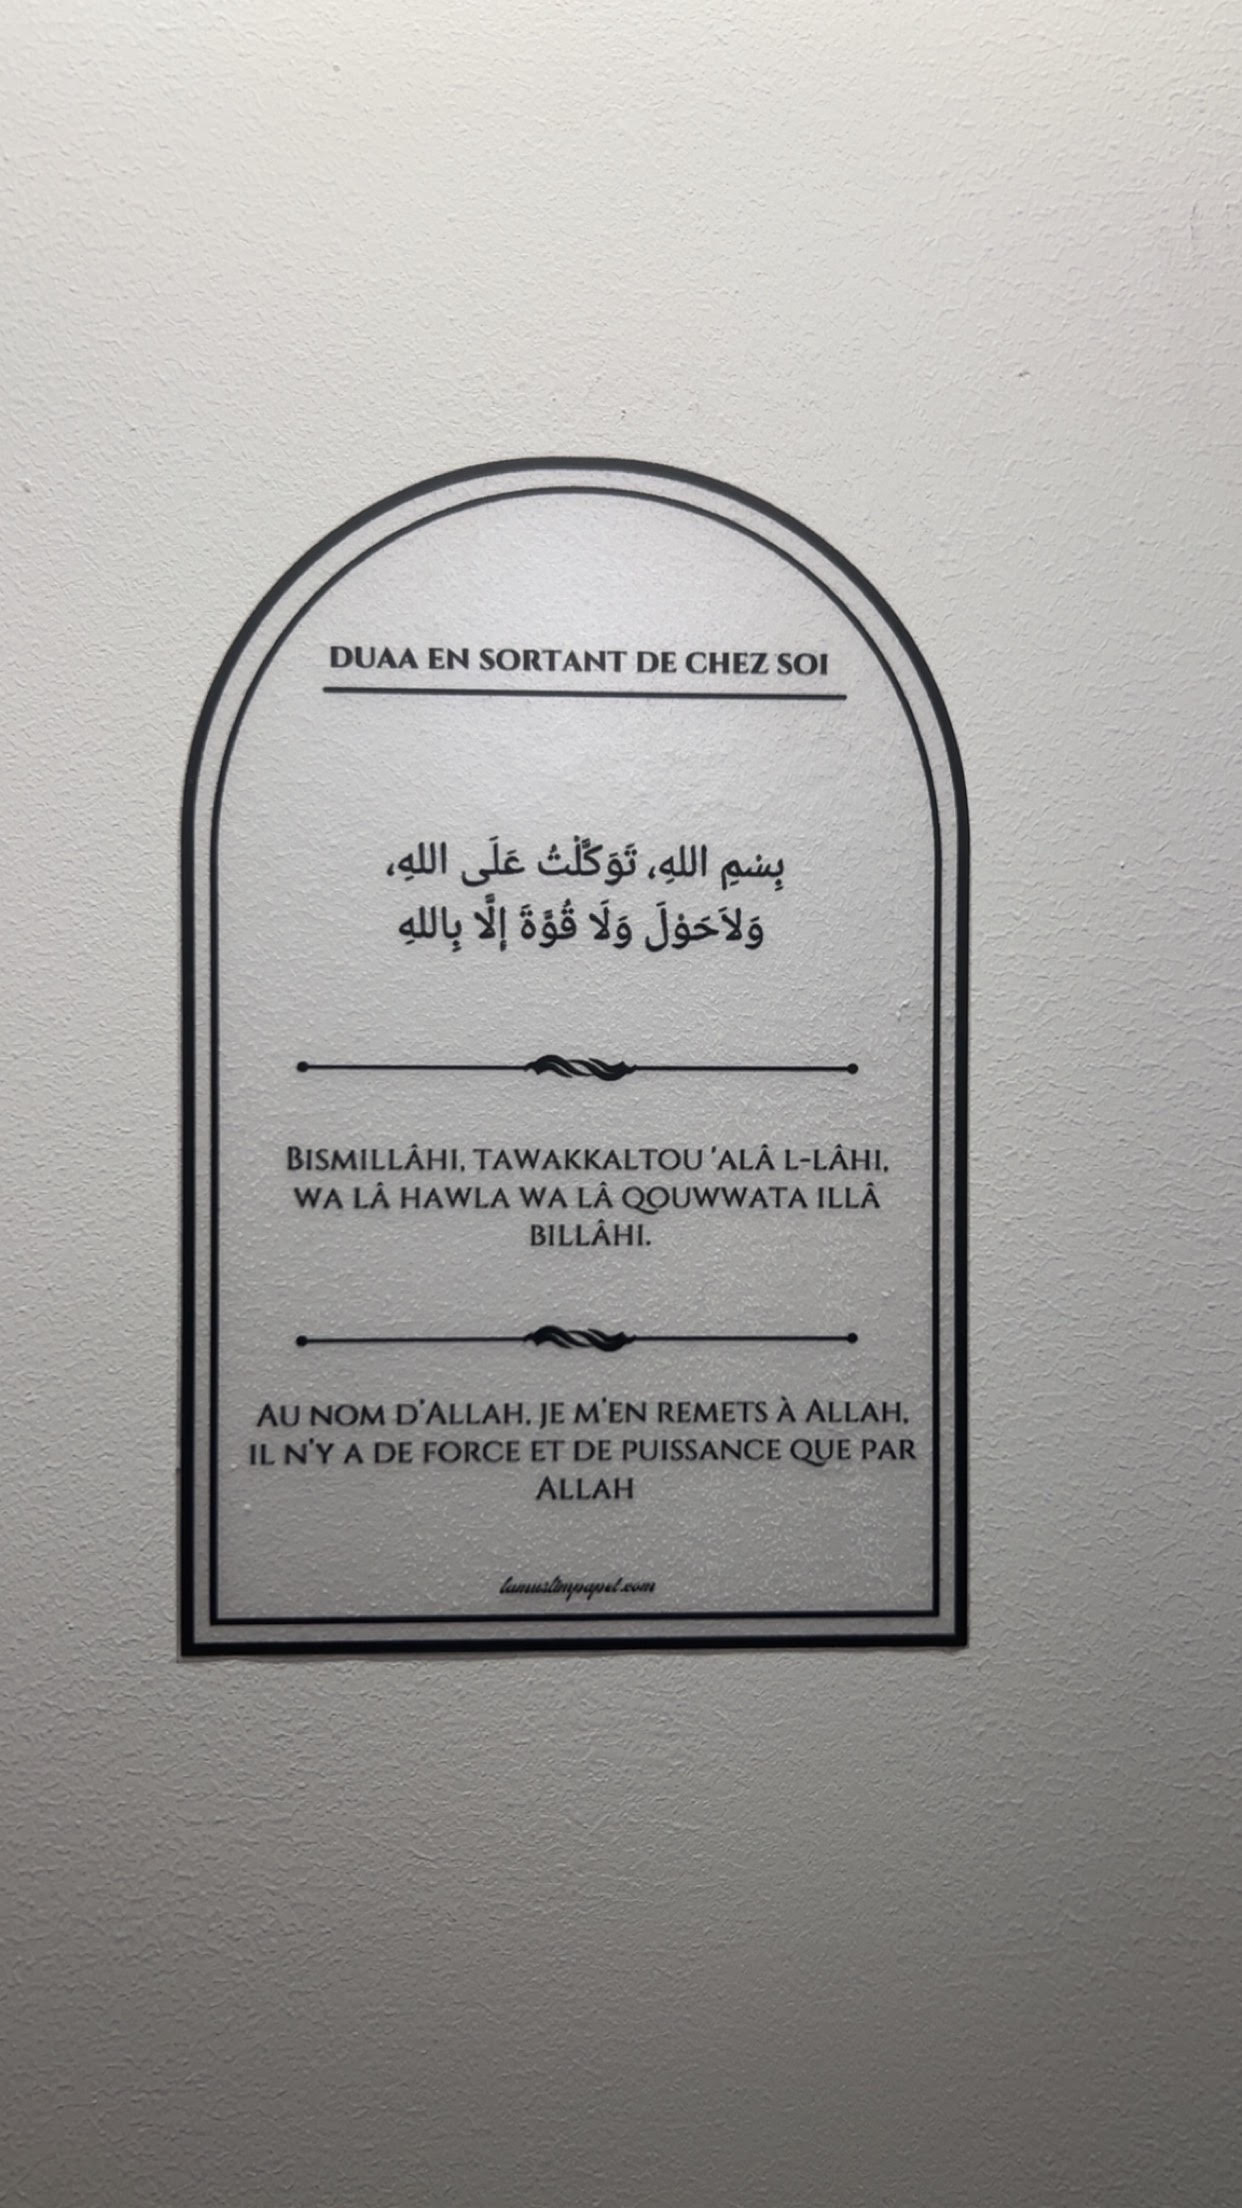 DUAA EN SORTANT DE CHEZ SOI
بِسْمِ اللهِ، تَوَكَّلْتُ عَلَى اللهِ،
وَلاَحَوْلَ وَلَا قُوَّةَ إلَّا بِاللهِ
BISMILLÂHI, TAWAKKALTOU 'ALÂ L-LÂHI,
WA LÂ HAWLA WA LÂ QOUWWATA ILLÂ
BILLÂHI.
AU NOM D'ALLAH, JE M'EN REMETS À ALLAH,
IL N'Y A DE FORCE ET DE PUISSANCE QUE PAR
ALLAH
lamuslimpapet.com